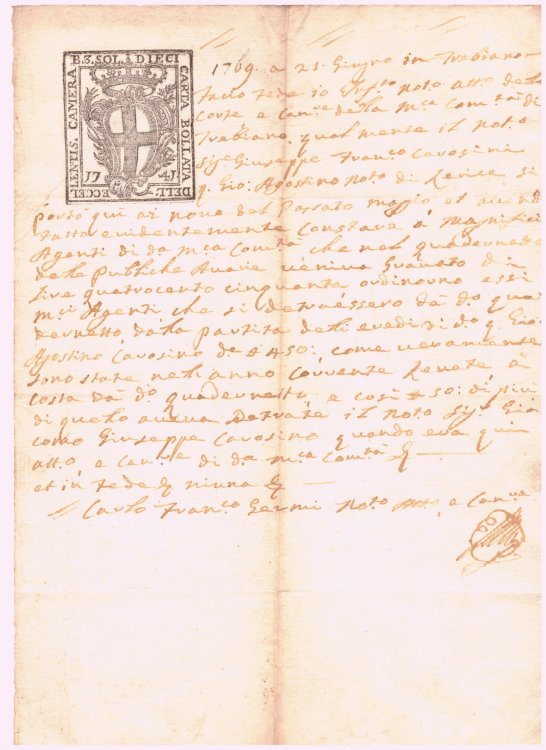 B.3. SOL. DIECI
CARTA BOLLATA
DELL'
ECCELLENTIS. CAMERA
17 41
1769 a 21 Giugno in Trebiano
Faccio fede io Inf.to Not.o Att.o della
Corte e Can.re della M.ca Com.tà di
Trebiano qualmente il Not.o
Sig.e Giuseppe Franco Cavosini
q. Gio: Agostino Not.o di Lerice si
portò qui ai nove del Passato Maggio et
fatto evidentemente Constare a Magnifici
Agenti di d.a M.ca Com.tà che nel quadernetto
delle Publiche Avarie veniva Gravato di
lire quatrocento cinquanta ordinorno essi
M.ci Agenti che si detraessero da d.o qua
dernetto dalla partita delli eredi di d.o q. Gio:
Agostino Cavosino de 450: come veramente
sono state nell'anno Corrente Levate a
Costa da d.o quadernetto, e così 50: di più
di quello aveva Detrate il Not.o Sig.e Gia
como Giuseppe Cavosino quando era quivi
att.o e Can.re di d.a M.ca Com.tà &
et in fede & niuna &
Carlo Fran.co Germi Not.o Att.o e Can.re